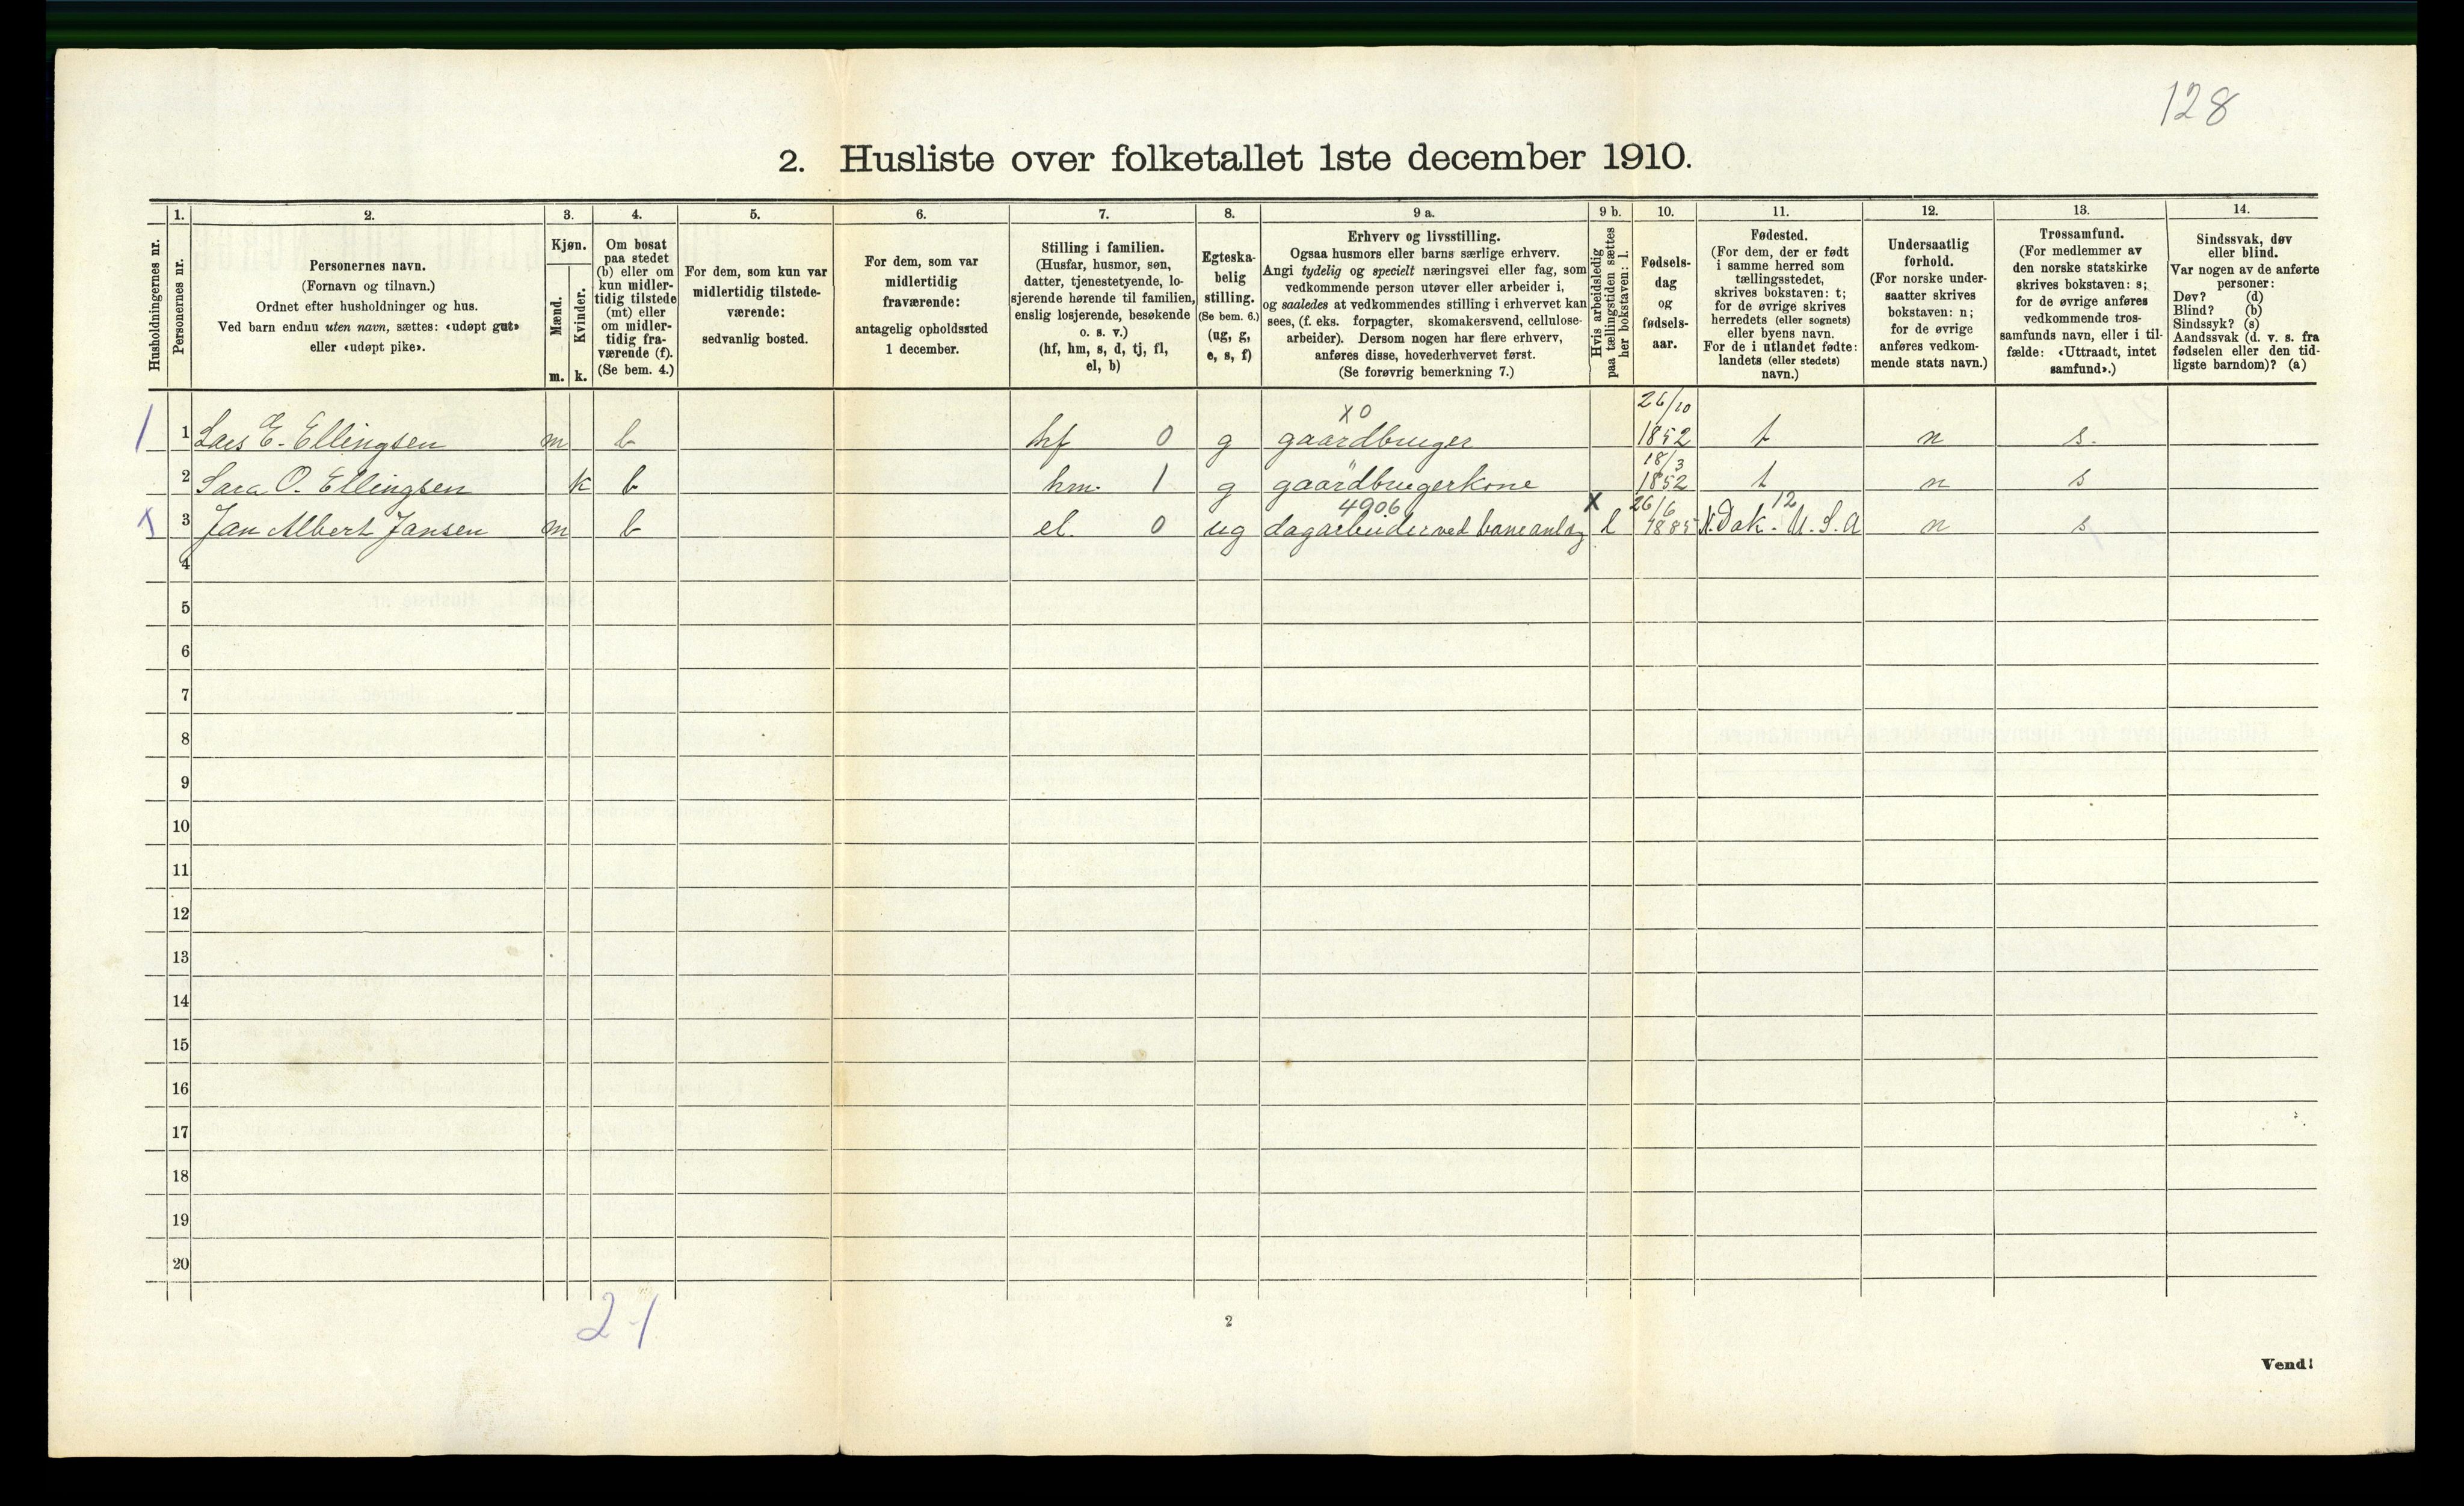 128
2. Husliste over folketallet 1ste december 1910.
1. 2. 3. 4. 5. 6. 7. 8. 9 a. 9 b. 10. 11. 12. 13. 14.
Husholdningernes nr.
Personernes nr.
Personernes navn.
(Fornavn og tilnavn.)
Ordnet efter husholdninger og hus.
Ved barn endnu uten navn, sættes: «udøpt gut»
eller «udøpt pike».
Kjøn.
Mænd.
Kvinder.
m. k.
Om bosat
paa stedet
(b) eller om
kun midler-
tidig tilstede
(mt) eller
om midler-
tidig fra-
værende (f).
(Se bem. 4.)
For dem, som kun var
midlertidig tilstede-
værende:
sedvanlig bosted.
For dem, som var
midlertidig
fraværende:
antagelig opholdssted
1 december.
Stilling i familien.
(Husfar, husmor, søn,
datter, tjenestetyende, lo-
sjerende hørende til familien,
enslig losjerende, besøkende
o. s. v.)
(hf, hm, s, d, tj, fl,
el, b)
Egteska-
belig
stilling.
(Se bem. 6.)
(ug, g,
e, s, f)
Erhverv og livsstilling.
Ogsaa husmors eller barns særlige erhverv.
Angi tydelig og specielt næringsvei eller fag, som
vedkommende person utøver eller arbeider i,
og saaledes at vedkommendes stilling i erhvervet kan
sees, (f. eks. forpagter, skomakersvend, cellulose-
arbeider). Dersom nogen har flere erhverv,
anføres disse, hovederhvervet først.
(Se forøvrig bemerkning 7.)
Hvis arbeidsledig
paa tællingstiden sættes
her bokstaven: l.
Fødsels-
dag
og
fødsels-
aar.
Fødested.
(For dem, der er født
i samme herred som
tællingsstedet,
skrives bokstaven: t;
for de øvrige skrives
herredets (eller sognets)
eller byens navn.
For de i utlandet fødte:
landets (eller stedets)
navn.)
Undersaatlig
forhold.
(For norske under-
saatter skrives
bokstaven: n;
for de øvrige
anføres vedkom-
mende stats navn.)
Trossamfund.
(For medlemmer av
den norske statskirke
skrives bokstaven: s;
for de øvrige anføres
vedkommende tros-
samfunds navn, eller i til-
fælde: «Uttraadt, intet
samfund».)
Sindssvak, døv
eller blind.
Var nogen av de anførte
personer:
Døv? (d)
Blind? (b)
Sindssyk? (s)
Aandssvak (d. v. s. fra
fødselen eller den tid-
ligste barndom)? (a)
x0 26/10
1 1 Lars E. Ellingsen m b hf 0 g gaardbruger 1852 t n s.
18/3
2 Sara O. Ellingsen k b hm. 1 g gaardbrugerkone 1852 t n s
4906 x 26/6 12
x 3 Jan Albert Jansen m b el. 0 ug dagarbeider ved baneanlæg l 1885 N. Dak. U. S. A n s
4
5
6
7
8
9
10
11
12
13
14
15
16
17
18
19
20
2-1
2
Vend!